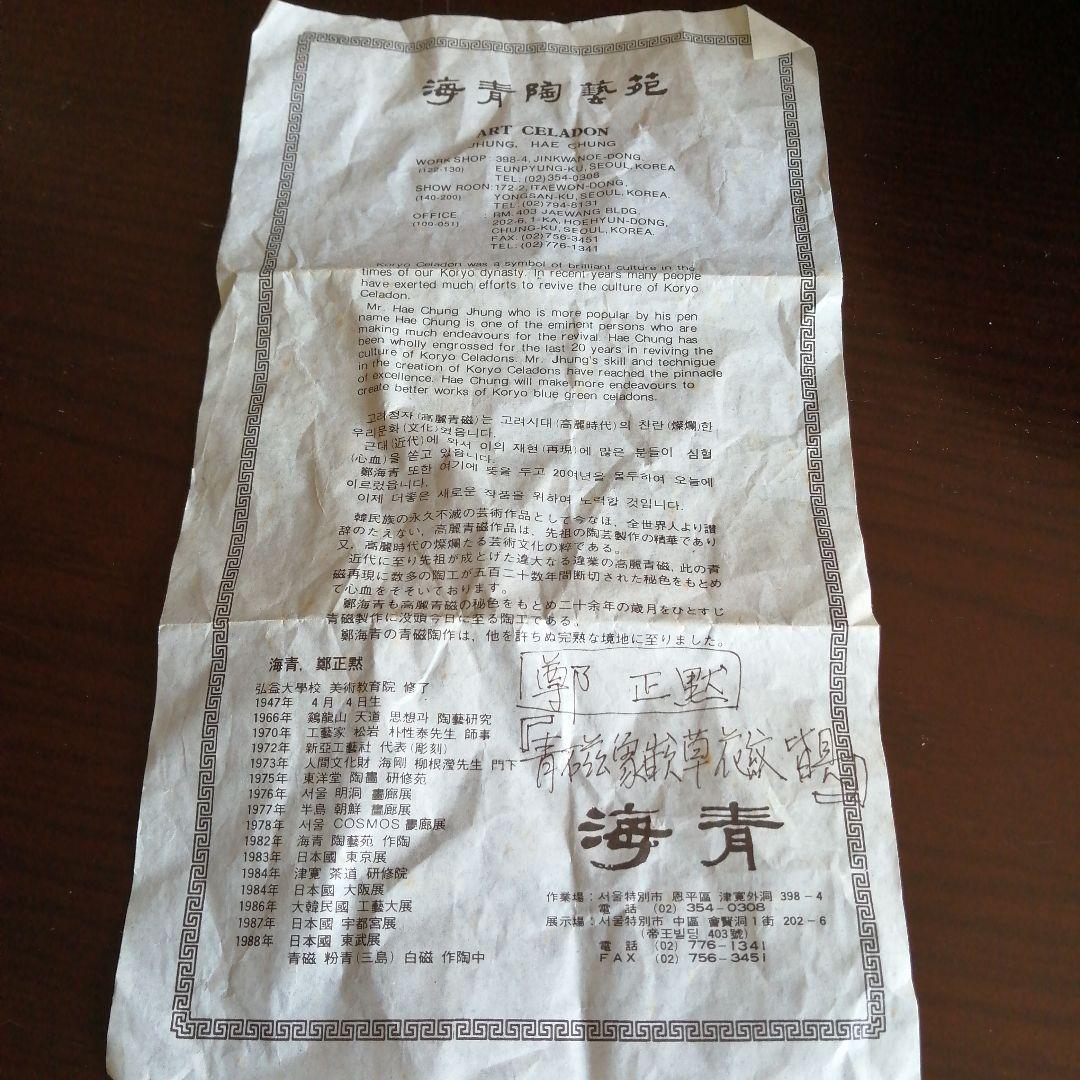 海青陶藝苑
ART CELADON
JHUNG, HAE CHUNG
WORK SHOP : 398-4, JINKWANOE-DONG,
(122-130) EUNPYUNG-KU, SEOUL, KOREA
TEL: (02) 354-0308
SHOW ROON: 172-2, ITAEWON-DONG,
(140-200) YONGSAN-KU, SEOUL, KOREA.
TEL: (02) 794-8131
OFFICE : RM. 403 JAEWANG BLDG,
(100-051) 202-6, 1-KA, HOEHYUN-DONG,
CHUNG-KU, SEOUL, KOREA.
FAX. (02) 756-3451
TEL: (02) 776-1341
Koryo Celadon was a symbol of brilliant culture in the
times of our Koryo dynasty. In recent years many people
have exerted much efforts to revive the culture of Koryo
Celadon.
Mr. Hae Chung Jhung who is more popular by his pen
name Hae Chung is one of the eminent persons who are
making much endeavours for the revival. Hae Chung has
been wholly engrossed for the last 20 years in reviving the
culture of Koryo Celadons. Mr. Jhung's skill and technigue
in the creation of Koryo Celadons have reached the pinnacle
of excellence. Hae Chung will make more endeavours to
create better works of Koryo blue green celadons.
고려청자(高麗青磁)는 고려시대(高麗時代)의 찬란(燦爛)한
우리문화(文化)였읍니다.
근대(近代)에 와서 이의 재현(再現)에 많은 분들이 심혈
(心血)을 쏟고 있읍니다.
鄭海青 또한 여기에 뜻을 두고 20여년을 몰두하여 오늘에
이르렀읍니다.
이제 더좋은 새로운 작품을 위하여 노력할 것입니다.
韓民族の永久不滅の芸術作品として今なほ、全世界人より讃
辞のたえない、高麗青磁作品は、先祖の陶芸製作の精華であり
又、高麗時代の燦爛たる芸術文化の粹である。
近代に至り先祖が成とげた違大なる違業の高麗青磁、此の青
磁再現に数多の陶工が五百二十数年間断切された秘色をもとめ
て心血をそそいております。
鄭海青も高麗青磁の秘色をもとめ二十余年の歳月をひとすじ
青磁製作に没頭今日に至る陶工である。
鄭海青の青磁陶作は、他を許ちぬ完熟な境地に至りました。
海青, 鄭正黙
弘益大學校 美術教育院 修了
1947年 4月 4日生
1966年 鷄龍山 天道 思想과 陶藝研究
1970年 工藝家 松岩 朴性泰先生 師事
1972年 新亞工藝社 代表(彫刻)
1973年 人間文化財 海剛 柳根瀅先生 門下
1975年 東洋堂 陶畵 研修苑
1976年 서울 明洞 畫廊展
1977年 半島 朝鮮 畫廊展
1978年 서울 COSMOS 畫廊展
1982年 海青 陶藝苑 作陶
1983年 日本國 東京展
1984年 津寬 茶道 研修院
1984年 日本國 大阪展
1986年 大韓民國 工藝大展
1987年 日本國 宇都宮展
1988年 日本國 東武展
青磁 粉青(三島) 白磁 作陶中
鄭 正黙
「青磁象嵌草花紋
海青
作業場 : 서울特別市 恩平區 津寬外洞 398-4
電 話 (02) 354-0308
展示場 : 서울特別市 中區 會賢洞1街 202-6
(帝王빌딩 403號)
電 話 (02) 776-1341
FAX (02) 756-3451